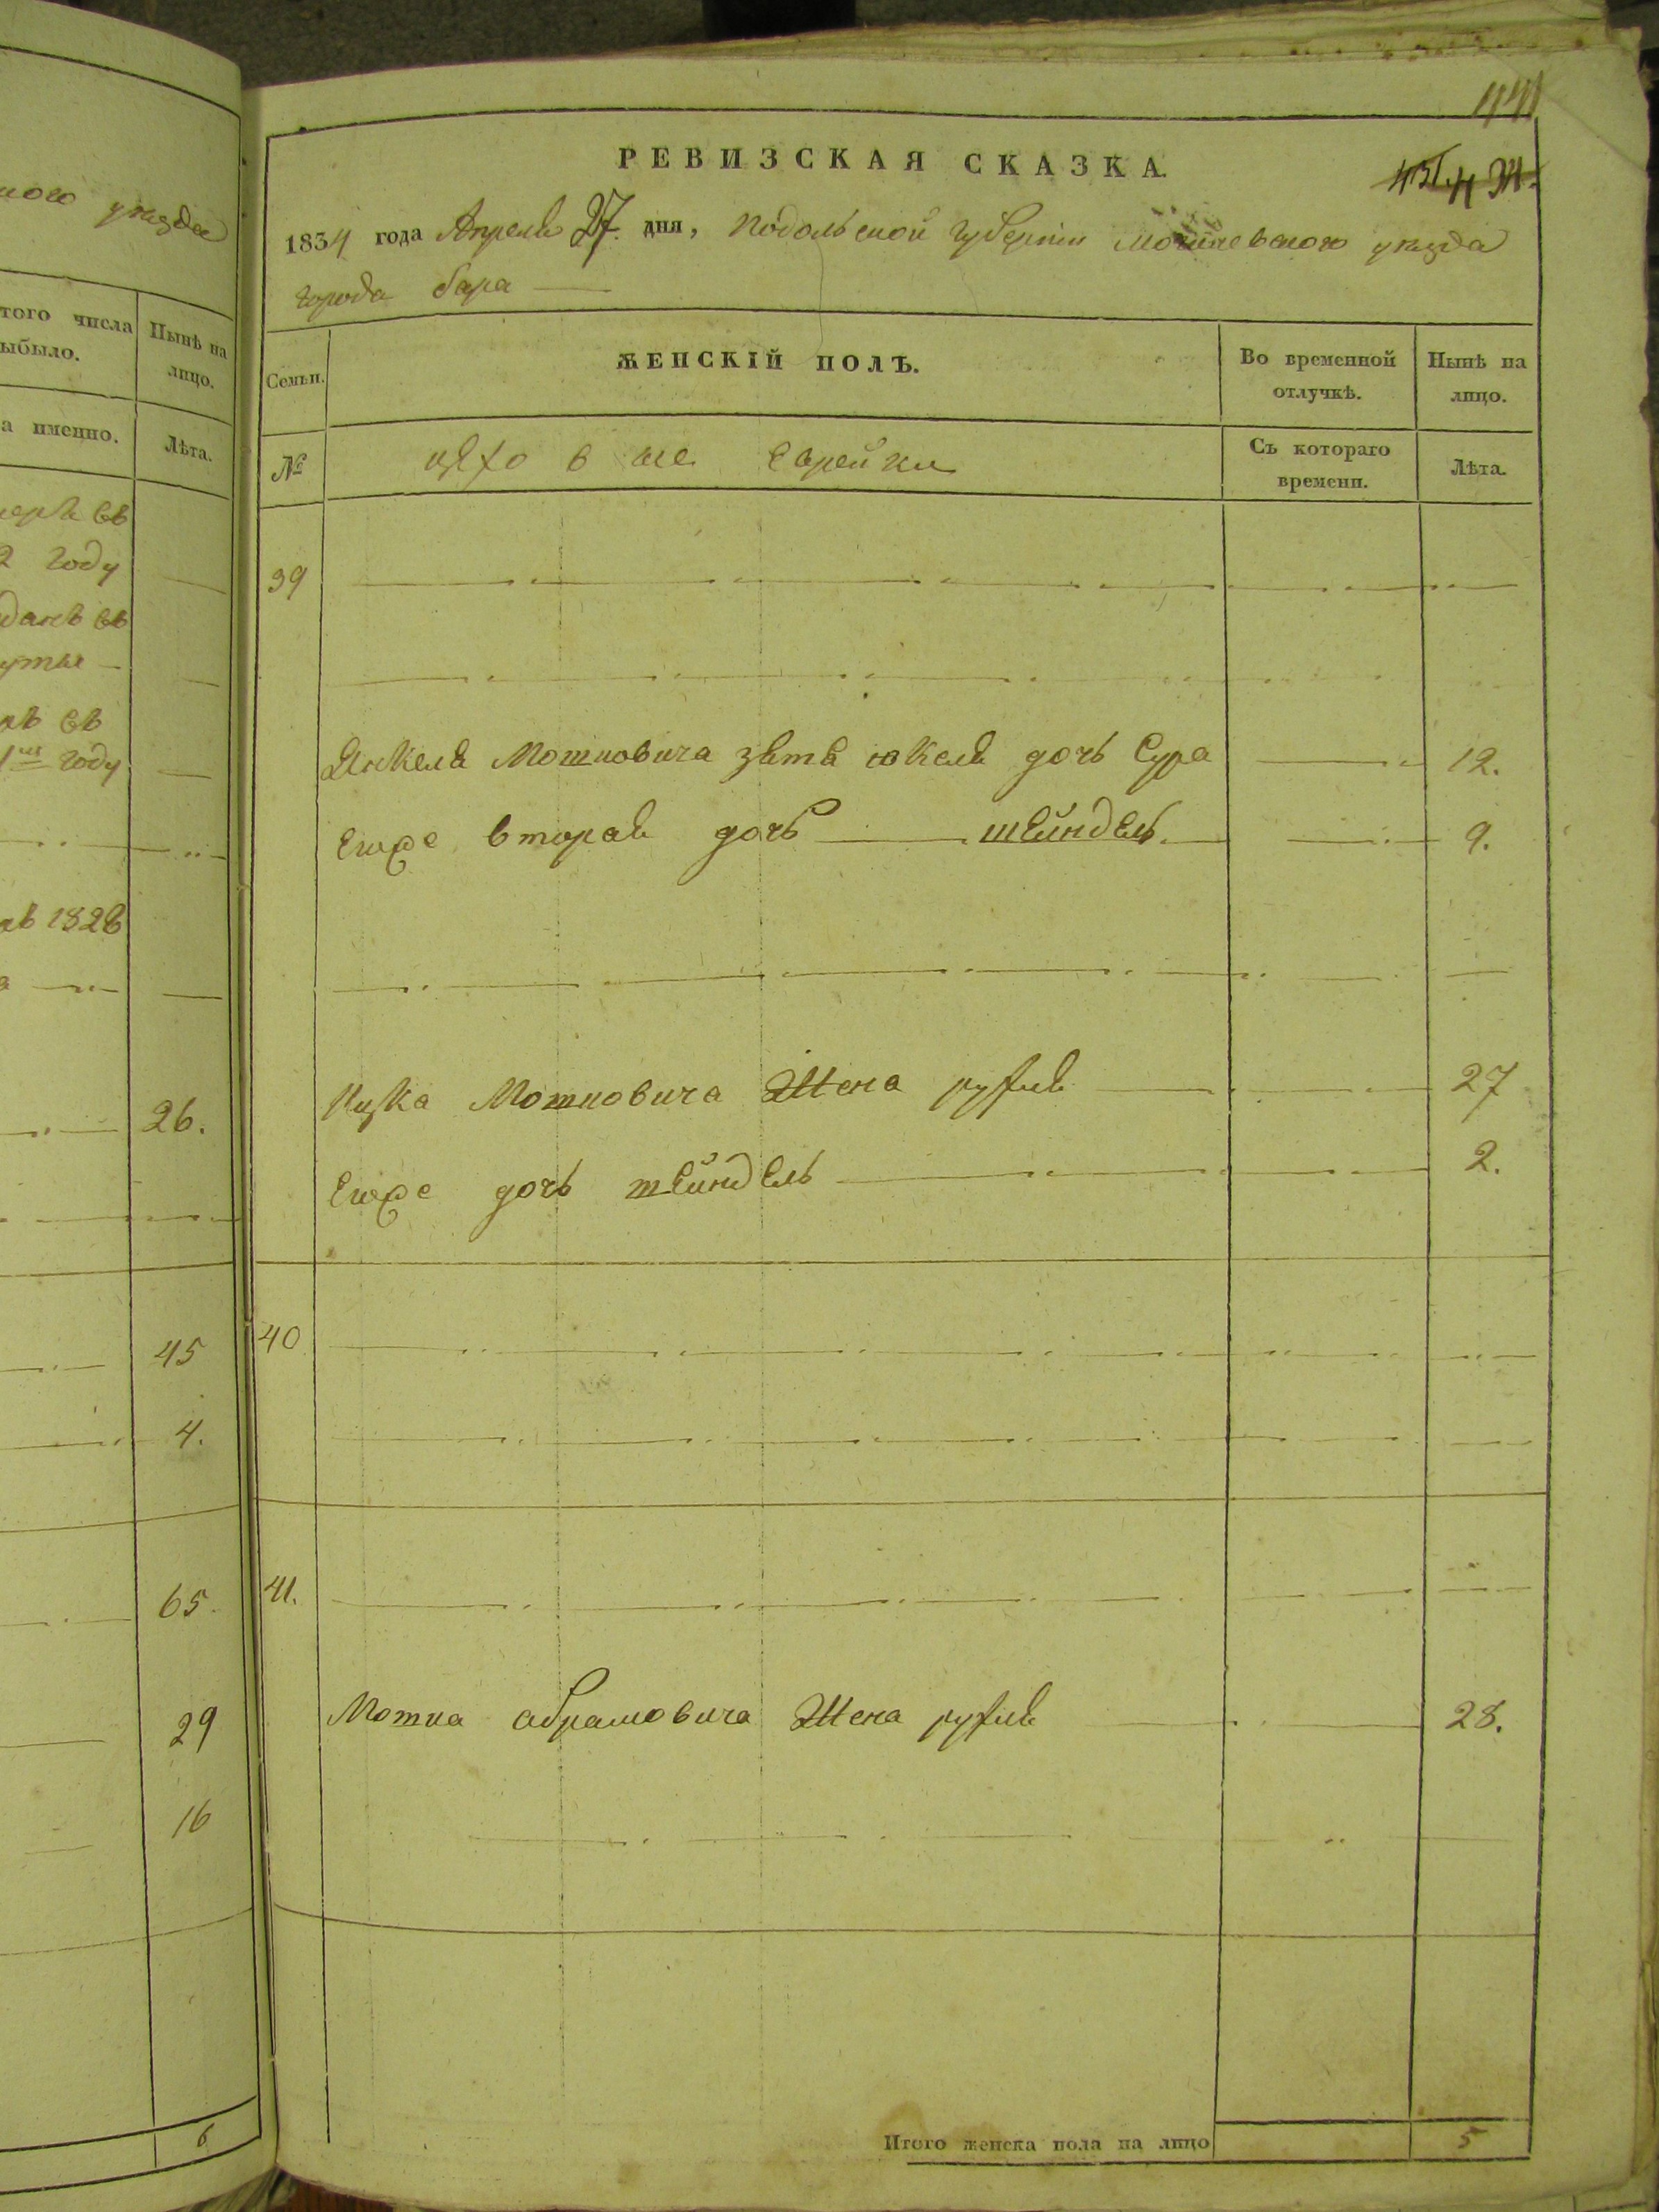 ного уезда
того числа
ыбыло.
Нынѣ на
лицо.
а именно.
Лѣта.
году
году
1828
26.
45
4.
65.
29
16
6
441
РЕВИЗСКАЯ СКАЗКА.
1834 года Апреля 27. дня, Подольской Губернии Могилевского уезда
города бара
Семьи.
ЖЕНСКІЙ ПОЛЪ.
Во временной
отлучкѣ.
Нынѣ на
лицо.
№
цехо в ые еврейки
Съ котораго
времени.
Лѣта.
39
Янкеля Мотиовича зятя юкеля дочь Сура 12.
Еще вторая дочь шейндель 9.
Ицка Мотиовича Жена рухля 27
Еще дочь шейндель 2.
40
41.
Мотиа абрамовича Жена рухля 28.
Итого женска пола на лицо 5